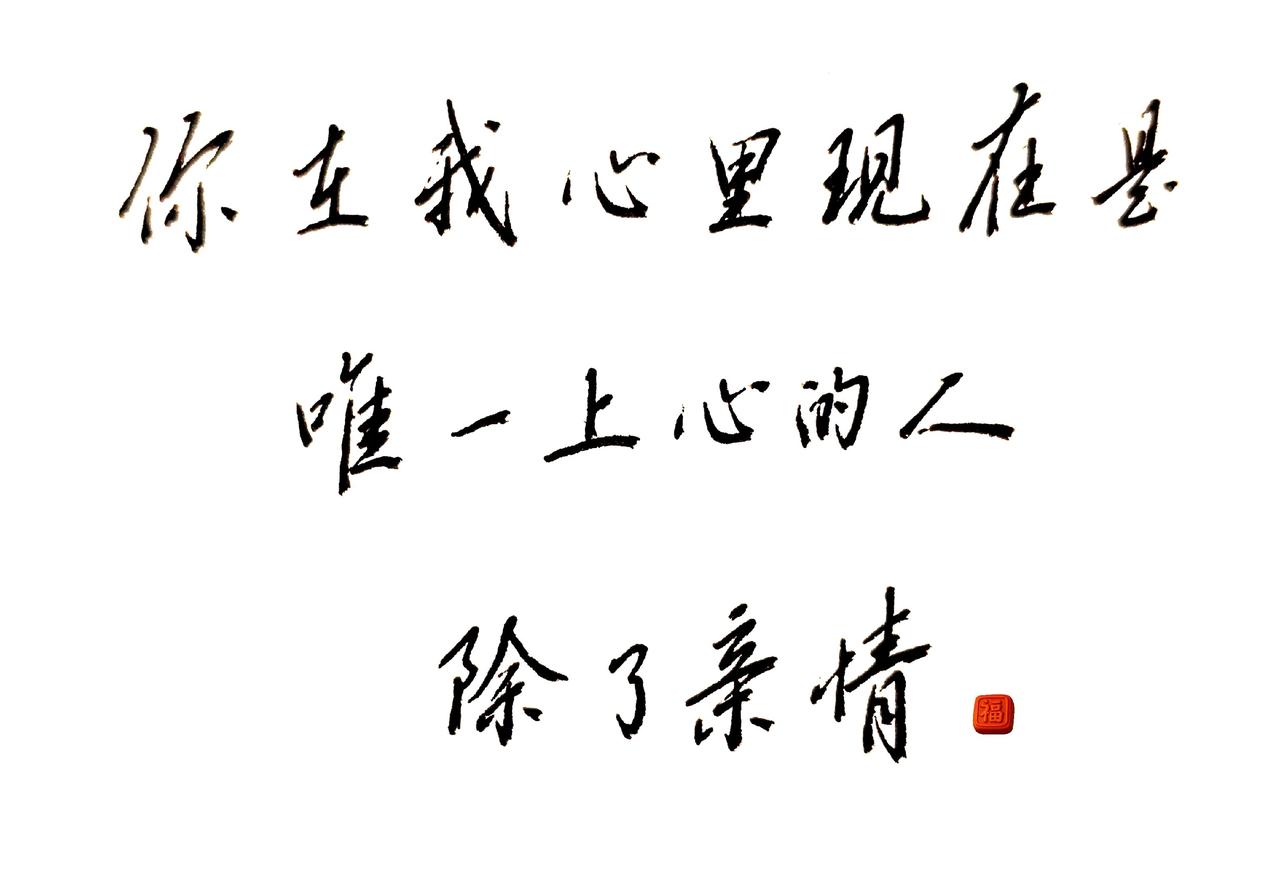 你在我心里现在是
唯一上心的人
除了亲情
福